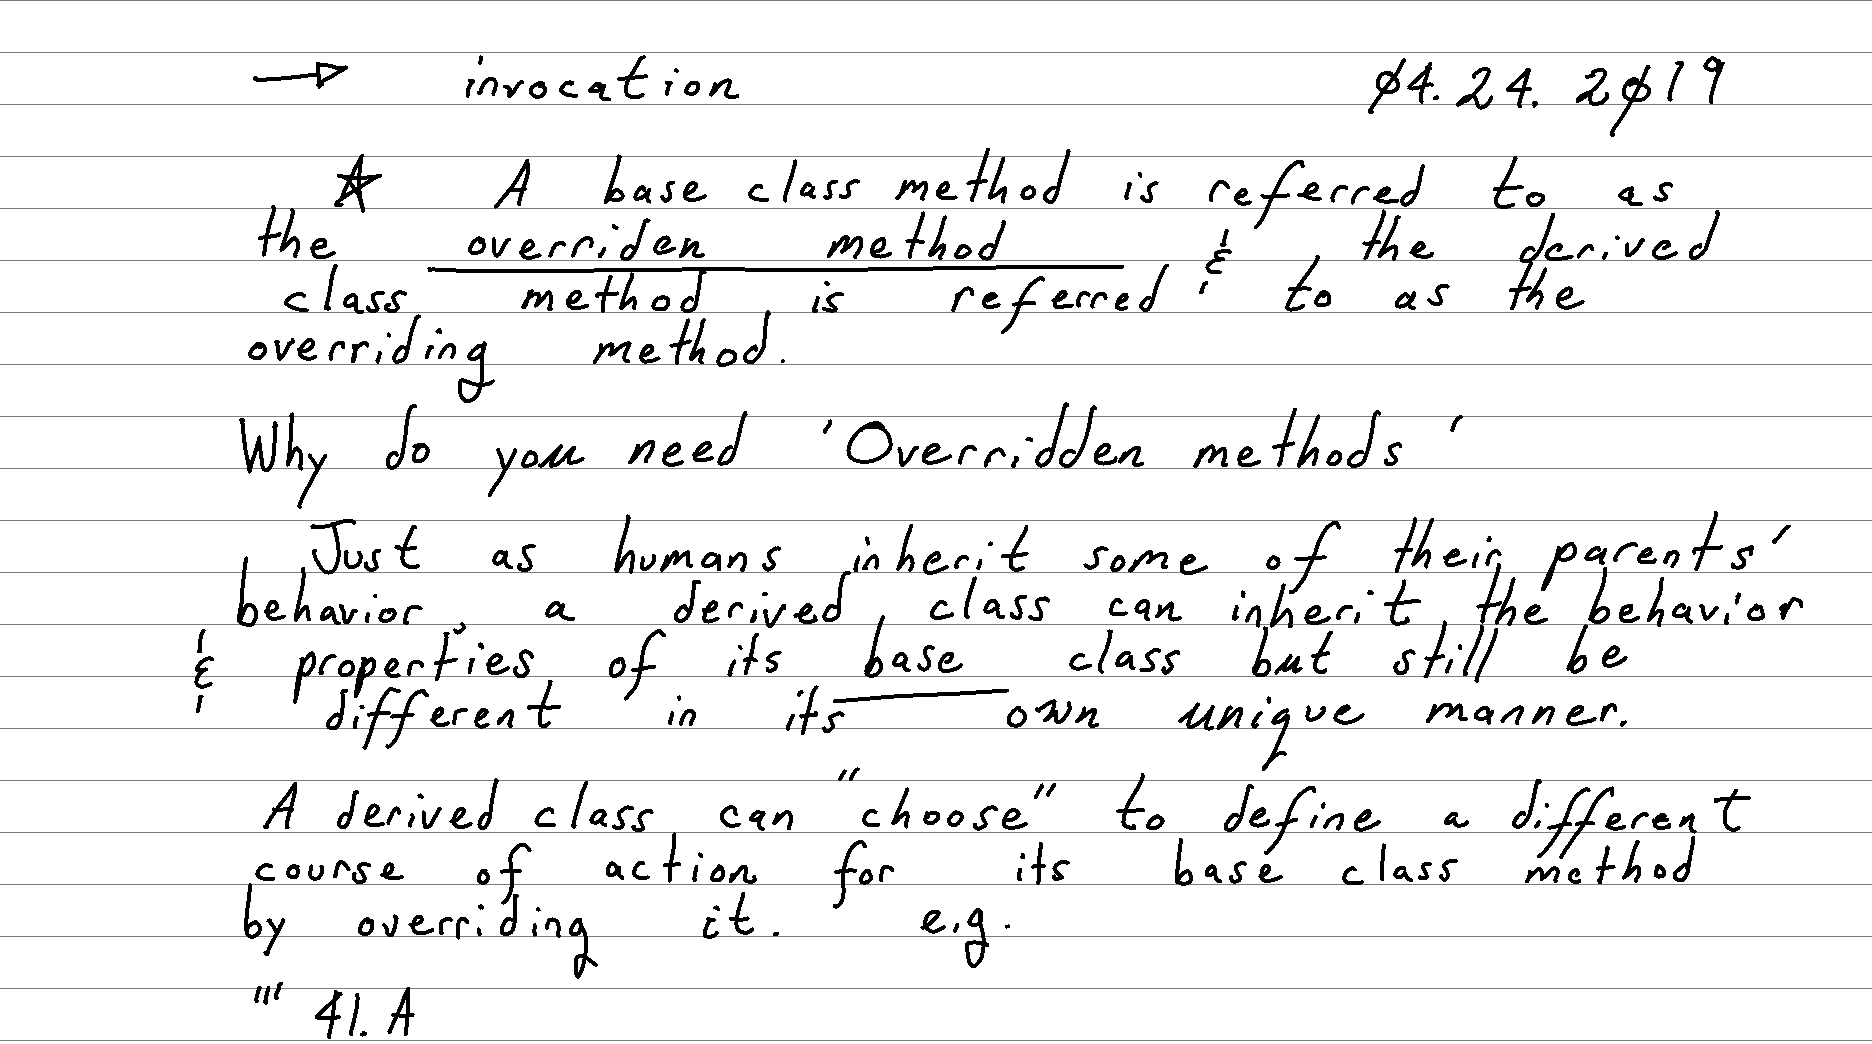 → invocation 04.24.2019
☆ A base class method is referred to as
the overriden method & the derived
class method is referred to as the
overriding method.
Why do you need 'Overridden methods'
Just as humans inherit some of their parents'
behavior, a derived class can inherit the behavior
& properties of its base class but still be
different in its own unique manner.
A derived class can "choose" to define a different
course of action for its base class method
by overriding it. e.g.
''' 41. A